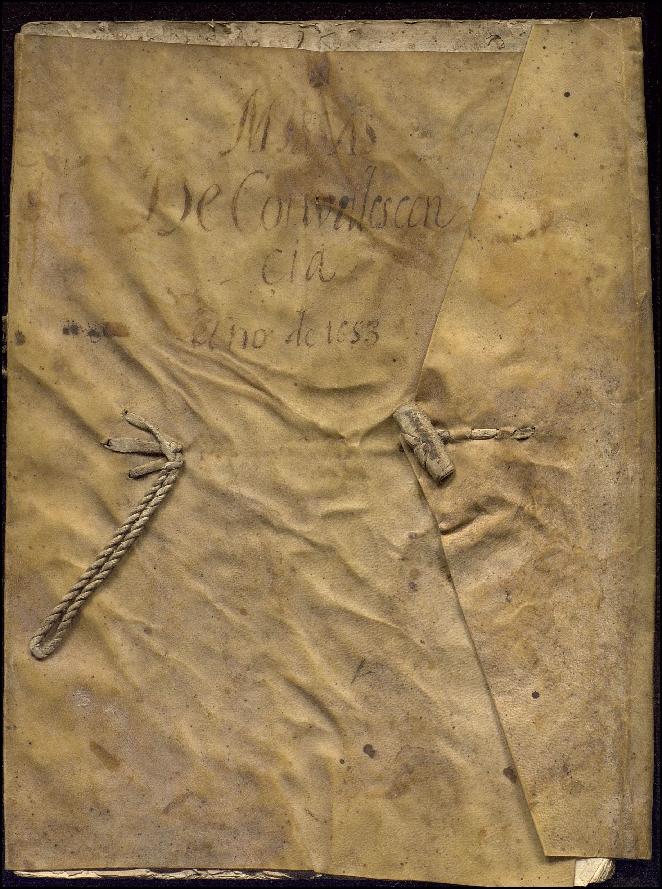 Missas
De Convalescen
cia
Año de 1653